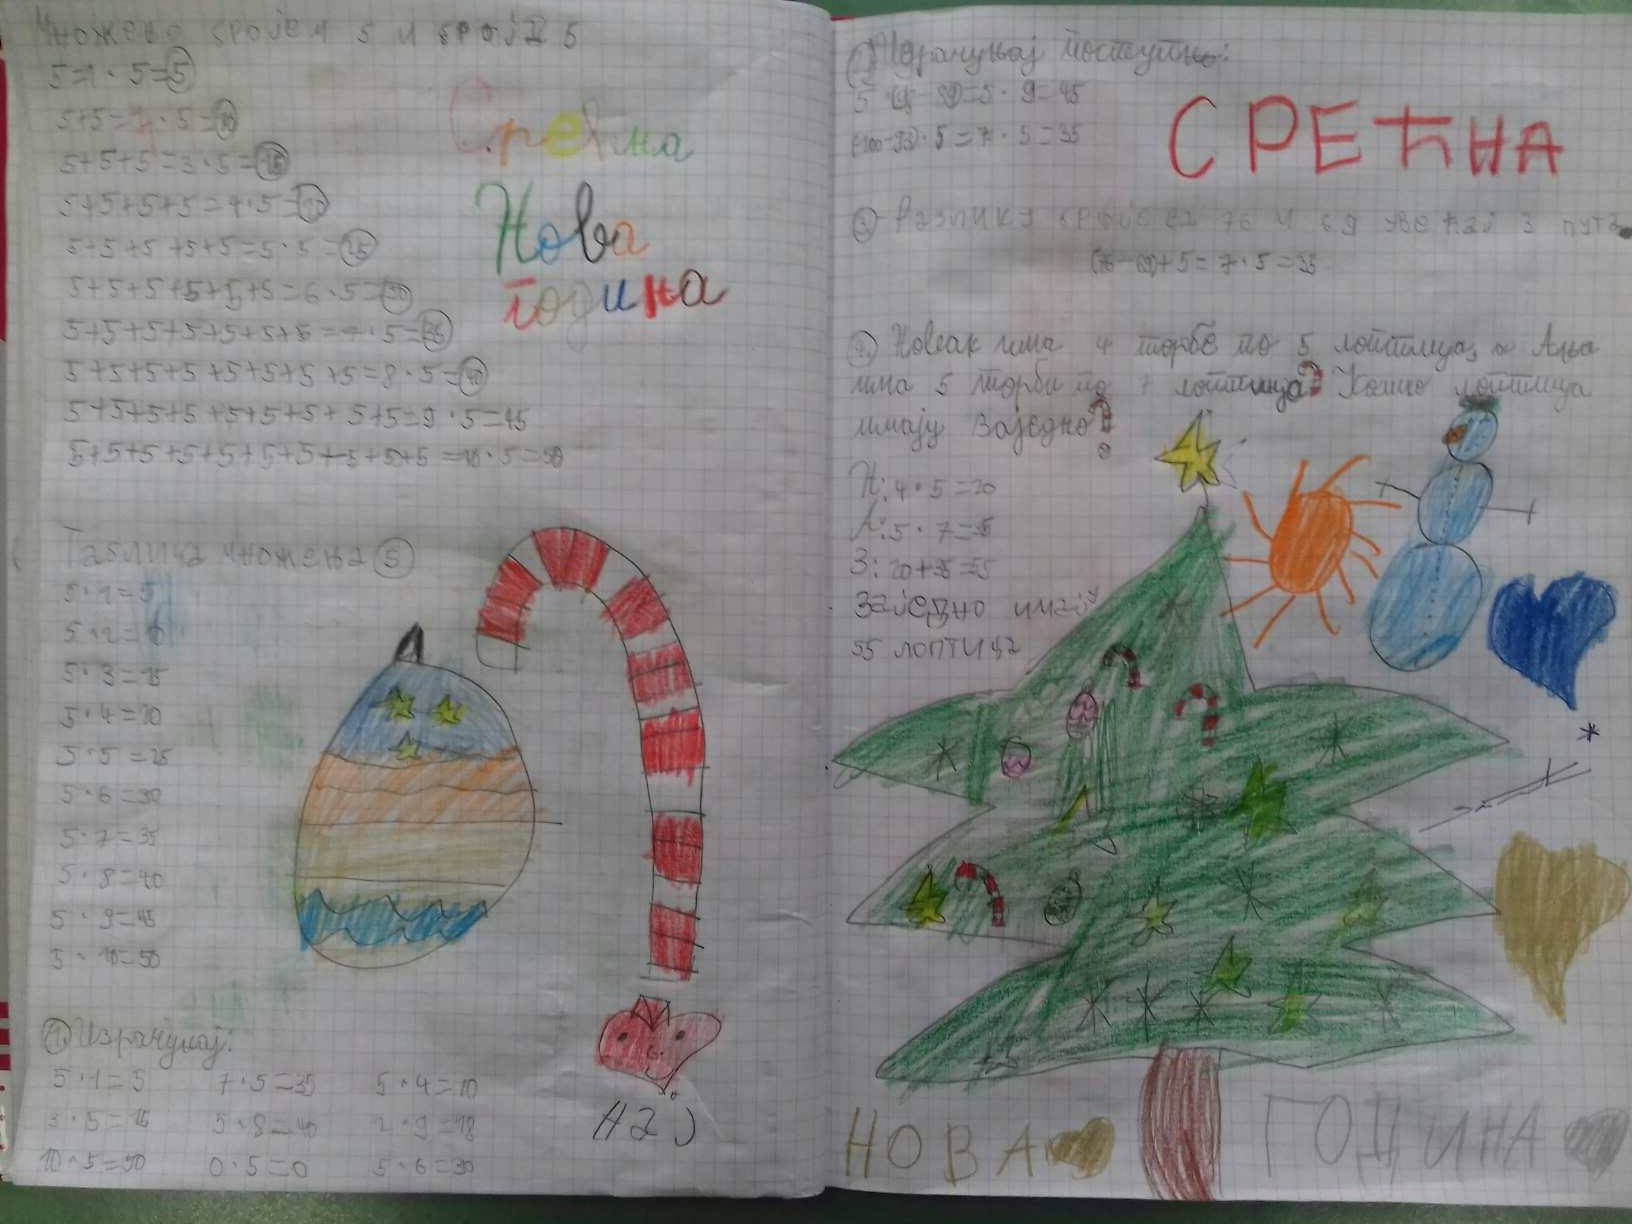 Множење бројем 5 и број 5
5=1·5=5
5+5=2·5=10
5+5+5=3·5=15
5+5+5+5=4·5=20
5+5+5+5+5=5·5=25
5+5+5+5+5+5=6·5=30
5+5+5+5+5+5+5=7·5=35
5+5+5+5+5+5+5+5=8·5=40
5+5+5+5+5+5+5+5+5=9·5=45
5+5+5+5+5+5+5+5+5+5=10·5=50
Срећна
Нова
година
Таблица множења 5
5·1=5
5·2=10
5·3=15
5·4=20
5·5=25
5·6=30
5·7=35
5·8=40
5·9=45
5·10=50
1. Израчунај:
5·1=5 7·5=35 5·4=20
3·5=15 5·8=40 2·9=18
10·5=50 0·5=0 5·6=30
Израчунај поступно:
=5·9=45
(100-93)·5=7·5=35
СРЕЋНА
3. Разлику бројева 76 и 69 увећај 5 пута
(76-69)+5=7·5=35
4. Новак има 4 торбе по 5 лоптица, а Ања
има 5 торби по 7 лоптица? Колко лоптица
имају заједно?
Н: 4·5=20
А: 5·7=35
З: 20+35=55
Заједно имају
55 лоптица
НОВА ГОДИНА